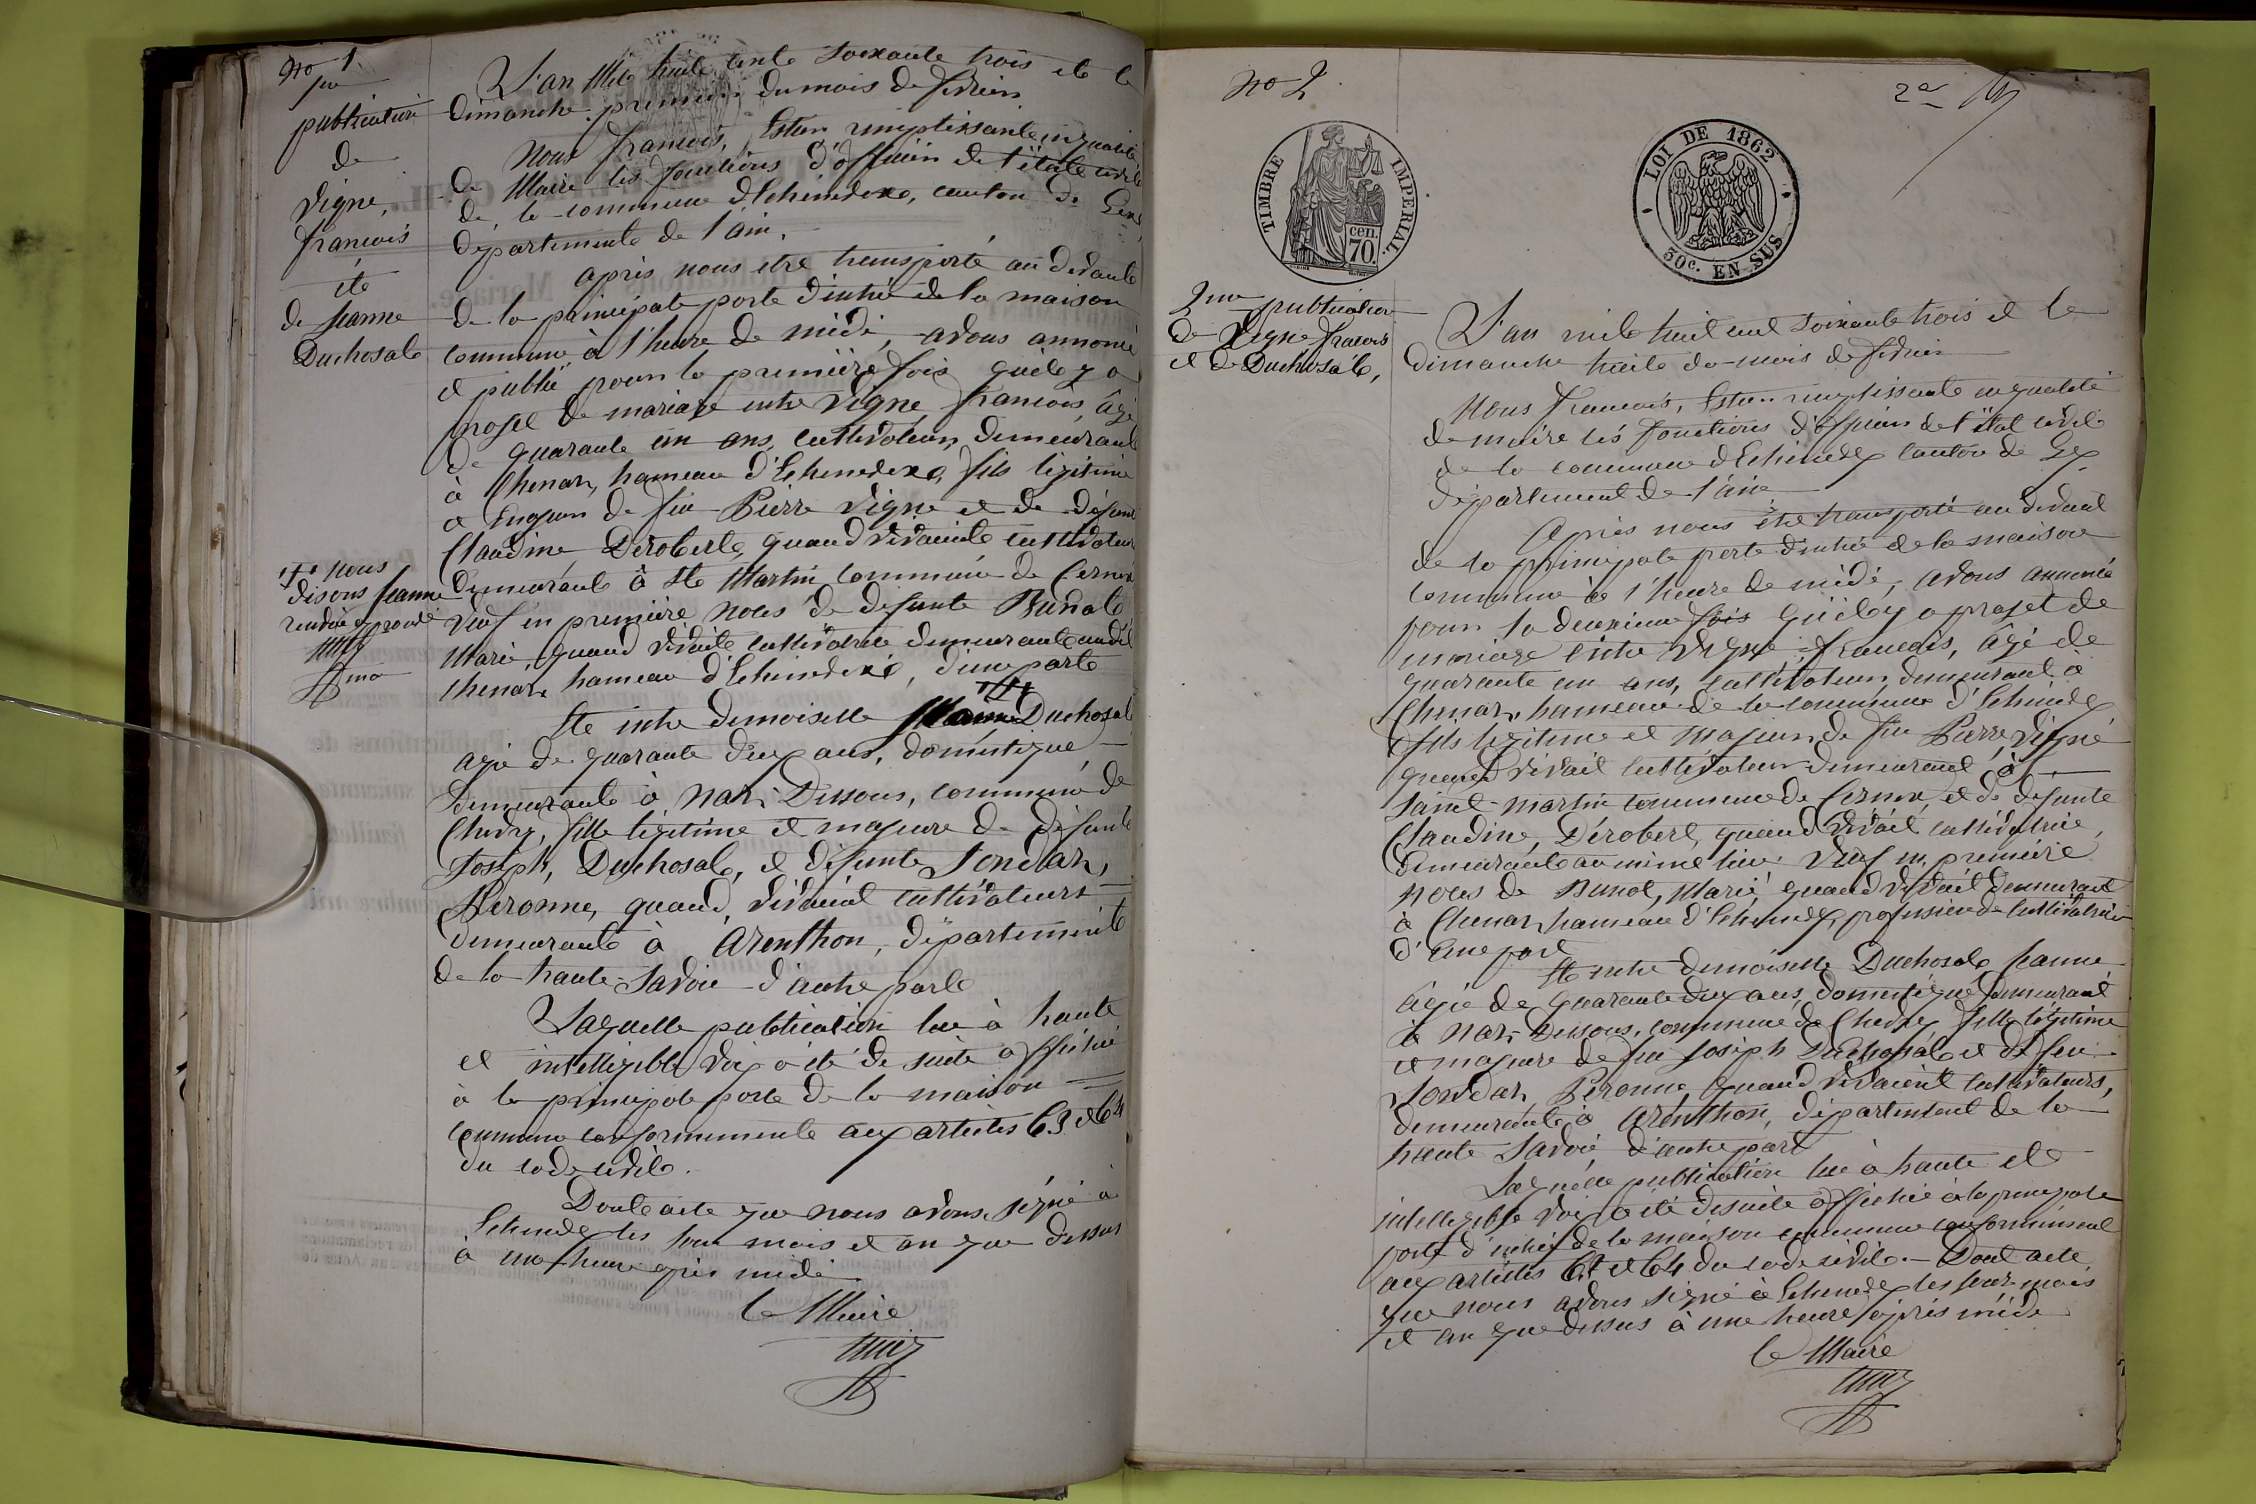 No 1.
1re
publication
de
Vigne,
francois
et
de Jeanne
Duchosal
L'an Mil huit cent soixante trois et le
dimanche premier du mois de fevrier
Nous francois, remplissant en qualité
de Maire les fonctions d'officier de l'état civil
de la commune d'Echenevex, canton de Gex
département de l'ain.
après nous etre transporté au devant
de la principale porte d'entrée de la maison
commune à l'heure de midi, avons annoncé
et publié pour la première fois qu'il y a
projet de mariage entre Vigne, francois, âgé
de quarante un ans, cultivateur, demeurant
à Chenaz, hameau d'Echenevex, fils légitime
et majeur de feu Pierre Vigne et de défunte
Claudine Dérobert, quand vivaient cultivateurs
demeurant à St Martin commune de
veuf en première noces de defunte
Marie, quand vivait cultivatrice demeurante au dit
Chenaz hameau d'Echenevex, d'une part
nous
disons Jeanne
Et entre demoiselle Jeanne Duchosal
agée de quarante deux ans, domestique,
demeurante à Naz-Dessous, commune de
Chevry, fille légitime et majeure de défunt
Joseph, Duchosal, et défunte Jondaz,
Péronne, quand, vivaient cultivateurs
demeurant à Arenthon, département
de la haute-Savoie d'autre part
Laquelle publication lue à haute
et intelligible voix a été de suite affichée
à la principale porte de la maison
commune conformement aux articles 63 et 64
du code civil.
Dont acte que nous avons signé à
Echenevex les jour mois et an que dessus
à une heure après midi
le Maire
No 2.
TIMBRE IMPERIAL.
cen.
70.
LOI DE 1862
30c. EN SUS
2me publication
de Vigne francois
et de Duchosal,
L'an mil huit cent soixante trois et le
dimanche huit du mois de fevrier
Nous francois, remplissant en qualité
de maire les fonctions d'officier de l'état civil
de la commune d'Echenevex canton de Gex
département de l'ain
Après nous être transporté au devant
de la principale porte d'entrée de la maison
commune à l'heure de midi, avons annoncé
pour la deuxième fois qu'il y a projet de
mariage entre Vigne, francois, âgé de
quarante un ans, cultivateur, demeurant à
Chenaz, hameau de la commune d'Echenevex
fils légitime et majeur de feu Pierre, Vigne
quand vivait cultivateur demeurant à
Saint-Martin commune de et de defunte
Claudine, Dérobert, quand vivait cultivatrice,
demeurante au même lieu. Veuf en première
noces de Marie, quand vivait demeurant
à Chenaz, hameau d'Echenevex, profession de cultivatrice
d'une part
Et entre demoiselle Duchosal Jeanne
âgée de quarante deux ans, domestique demeurant
à Naz-Dessous, commune de Chevry, fille légitime
et majeure de feu Joseph Duchosal et de feue
Jondaz, Péronne, quand vivaient cultivateurs,
demeurant à Arenthon, département de la
haute Savoie, d'autre part
Laquelle publication lue à haute et
intelligible voix a été de suite affichée à la principale
porte d'entrée de la maison commune conformément
aux articles 63 et 64 du code civil. - Dont acte
que nous avons signé à Echenevex les jour mois
et an que dessus à une heure après midi
le Maire